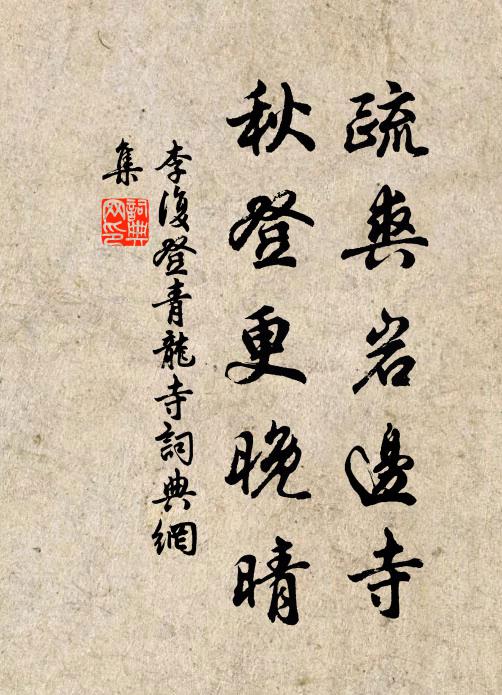 疏爽岩邊寺
秋登更晚晴
李復登青龍寺詞典網
集
詞典網印